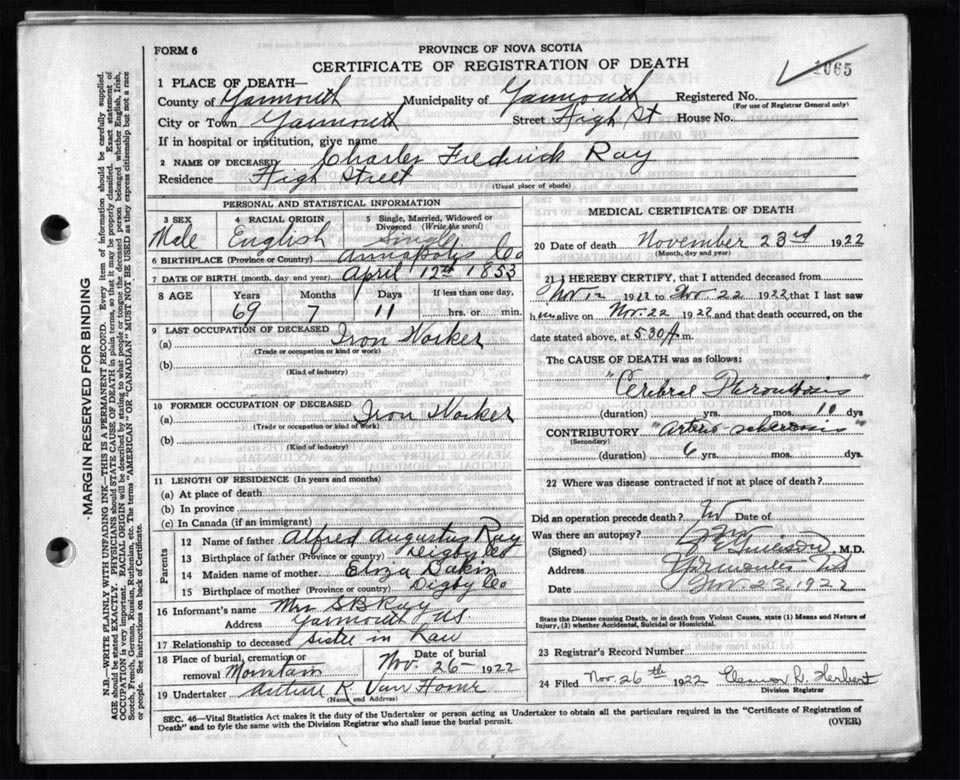 FORM 6
PROVINCE OF NOVA SCOTIA
CERTIFICATE OF REGISTRATION OF DEATH
1065
1 PLACE OF DEATH—
County of Yarmouth Municipality of Yarmouth Registered No.
(For use of Registrar General only)
City or Town Yarmouth Street High St House No.
If in hospital or institution, give name
2 NAME OF DECEASED Charles Fredrick Ray
Residence High Street
(Usual place of abode)
PERSONAL AND STATISTICAL INFORMATION
3 SEX 4 RACIAL ORIGIN 5 Single, Married, Widowed or Divorced (Write the word)
Male English Single
6 BIRTHPLACE (Province or Country) Annapolis Co
7 DATE OF BIRTH (month, day and year) April 12th 1853
8 AGE Years Months Days If less than one day,
69 7 11 hrs. or min.
9 LAST OCCUPATION OF DECEASED
(a) Iron Worker
(Trade or occupation or kind or work)
(b)
(Kind of industry)
10 FORMER OCCUPATION OF DECEASED
(a) Iron Worker
(Trade or occupation or kind of work)
(b)
(Kind of industry)
11 LENGTH OF RESIDENCE (In years and months)
(a) At place of death
(b) In province
(c) In Canada (if an immigrant)
Parents
12 Name of father Alfred Augustus Ray
13 Birthplace of father (Province or country) Digby Co
14 Maiden name of mother Eliza Dakin
15 Birthplace of mother (Province or country) Digby Co
16 Informant's name Mrs S B Ray
Address Yarmouth NS.
17 Relationship to deceased Sister in Law
18 Place of burial, cremation or removal Mountain Date of burial Nov. 26- 1922
19 Undertaker Arthur R. Van Horne
(Name and Address)
MEDICAL CERTIFICATE OF DEATH
20 Date of death November 23rd 1922
(Month, day and year)
21 I HEREBY CERTIFY, that I attended deceased from
Nov 12 1922 to Nov. 22 1922, that I last saw
him alive on Nov. 22 1922 and that death occurred, on
date stated above, at 5:30 A.m.
The CAUSE OF DEATH was as follows:
"Cerebral Thrombosis"
(duration) yrs. mos. 10 dys
CONTRIBUTORY "Arterio sclerosis"
(Secondary)
(duration) 6 yrs. mos. dys.
22 Where was disease contracted if not at place of death?
Did an operation precede death? No Date of
Was there an autopsy? No
(Signed) M.D.
Address Yarmouth NS
Date Nov. 23. 1922
State the Disease causing Death, or in death from Violent Causes, state (1) Means and Nature of
Injury, (2) whether Accidental, Suicidal or Homicidal.
23 Registrar's Record Number
24 Filed Nov. 26th 1922 Eleanor D. Herbert
Division Registrar
SEC. 46—Vital Statistics Act makes it the duty of the Undertaker or person acting as Undertaker to obtain all the particulars required in the "Certificate of Registration of
Death" and to fyle the same with the Division Registrar who shall issue the burial permit.
(OVER)
MARGIN RESERVED FOR BINDING
N.B.—WRITE PLAINLY WITH UNFADING INK—THIS IS A PERMANENT RECORD. Every item of information should be carefully supplied.
AGE should be stated EXACTLY. PHYSICIANS should STATE CAUSE OF DEATH in plain terms, so that it may be properly classified. Exact statement of
OCCUPATION is very important. RACIAL ORIGIN will be described by stating to what people or tongue the deceased person belonged whether English, Irish,
Scotch, French, German, Russian, Ruthenian, etc. The terms "AMERICAN" OR "CANADIAN" MUST NOT BE USED as they express citizenship but not a race
or people. See instructions on back of Certificate.